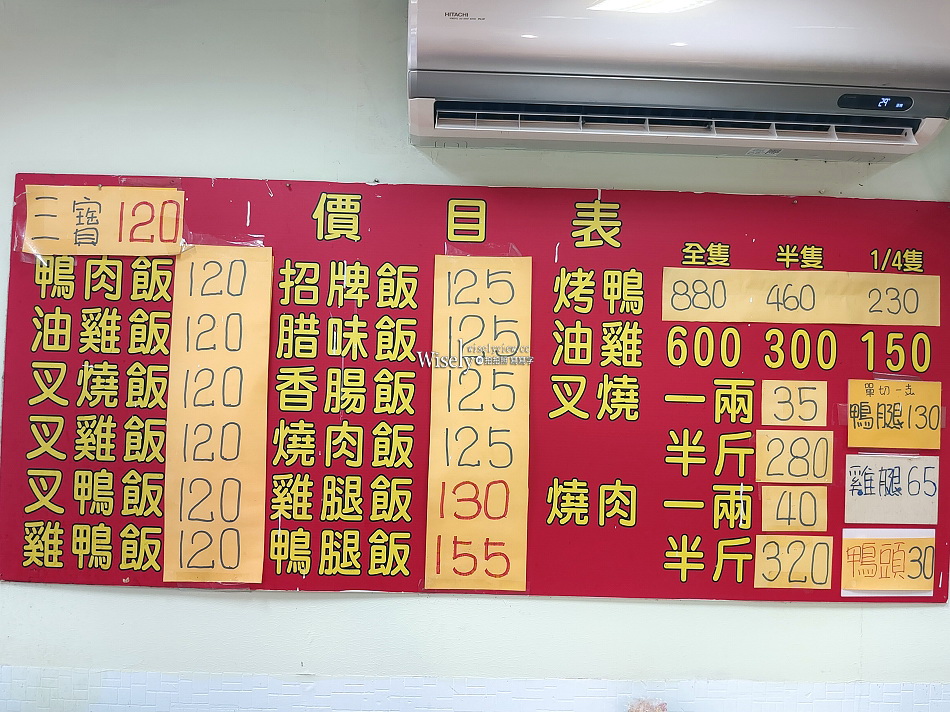 HITACHI
29
價目表
三寶 120
鴨肉飯 120
油雞飯 120
叉燒飯 120
叉雞飯 120
叉鴨飯 120
雞鴨飯 120
招牌飯 125
腊味飯 125
香腸飯 125
燒肉飯 125
雞腿飯 130
鴨腿飯 155
全隻 半隻 1/4隻
烤鴨 880 460 230
油雞 600 300 150
叉燒 一兩 35
半斤 280
燒肉 一兩 40
半斤 320
單切一支
鴨腿 130
雞腿 65
鴨頭 30
Wisely